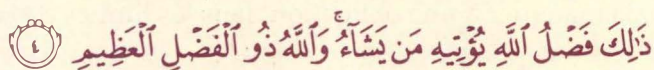 ذَٰلِكَ فَضۡلُ ٱللَّهِ يُؤۡتِيهِ مَن يَشَآءُۚ وَٱللَّهُ ذُو ٱلۡفَضۡلِ ٱلۡعَظِيمِ ٤